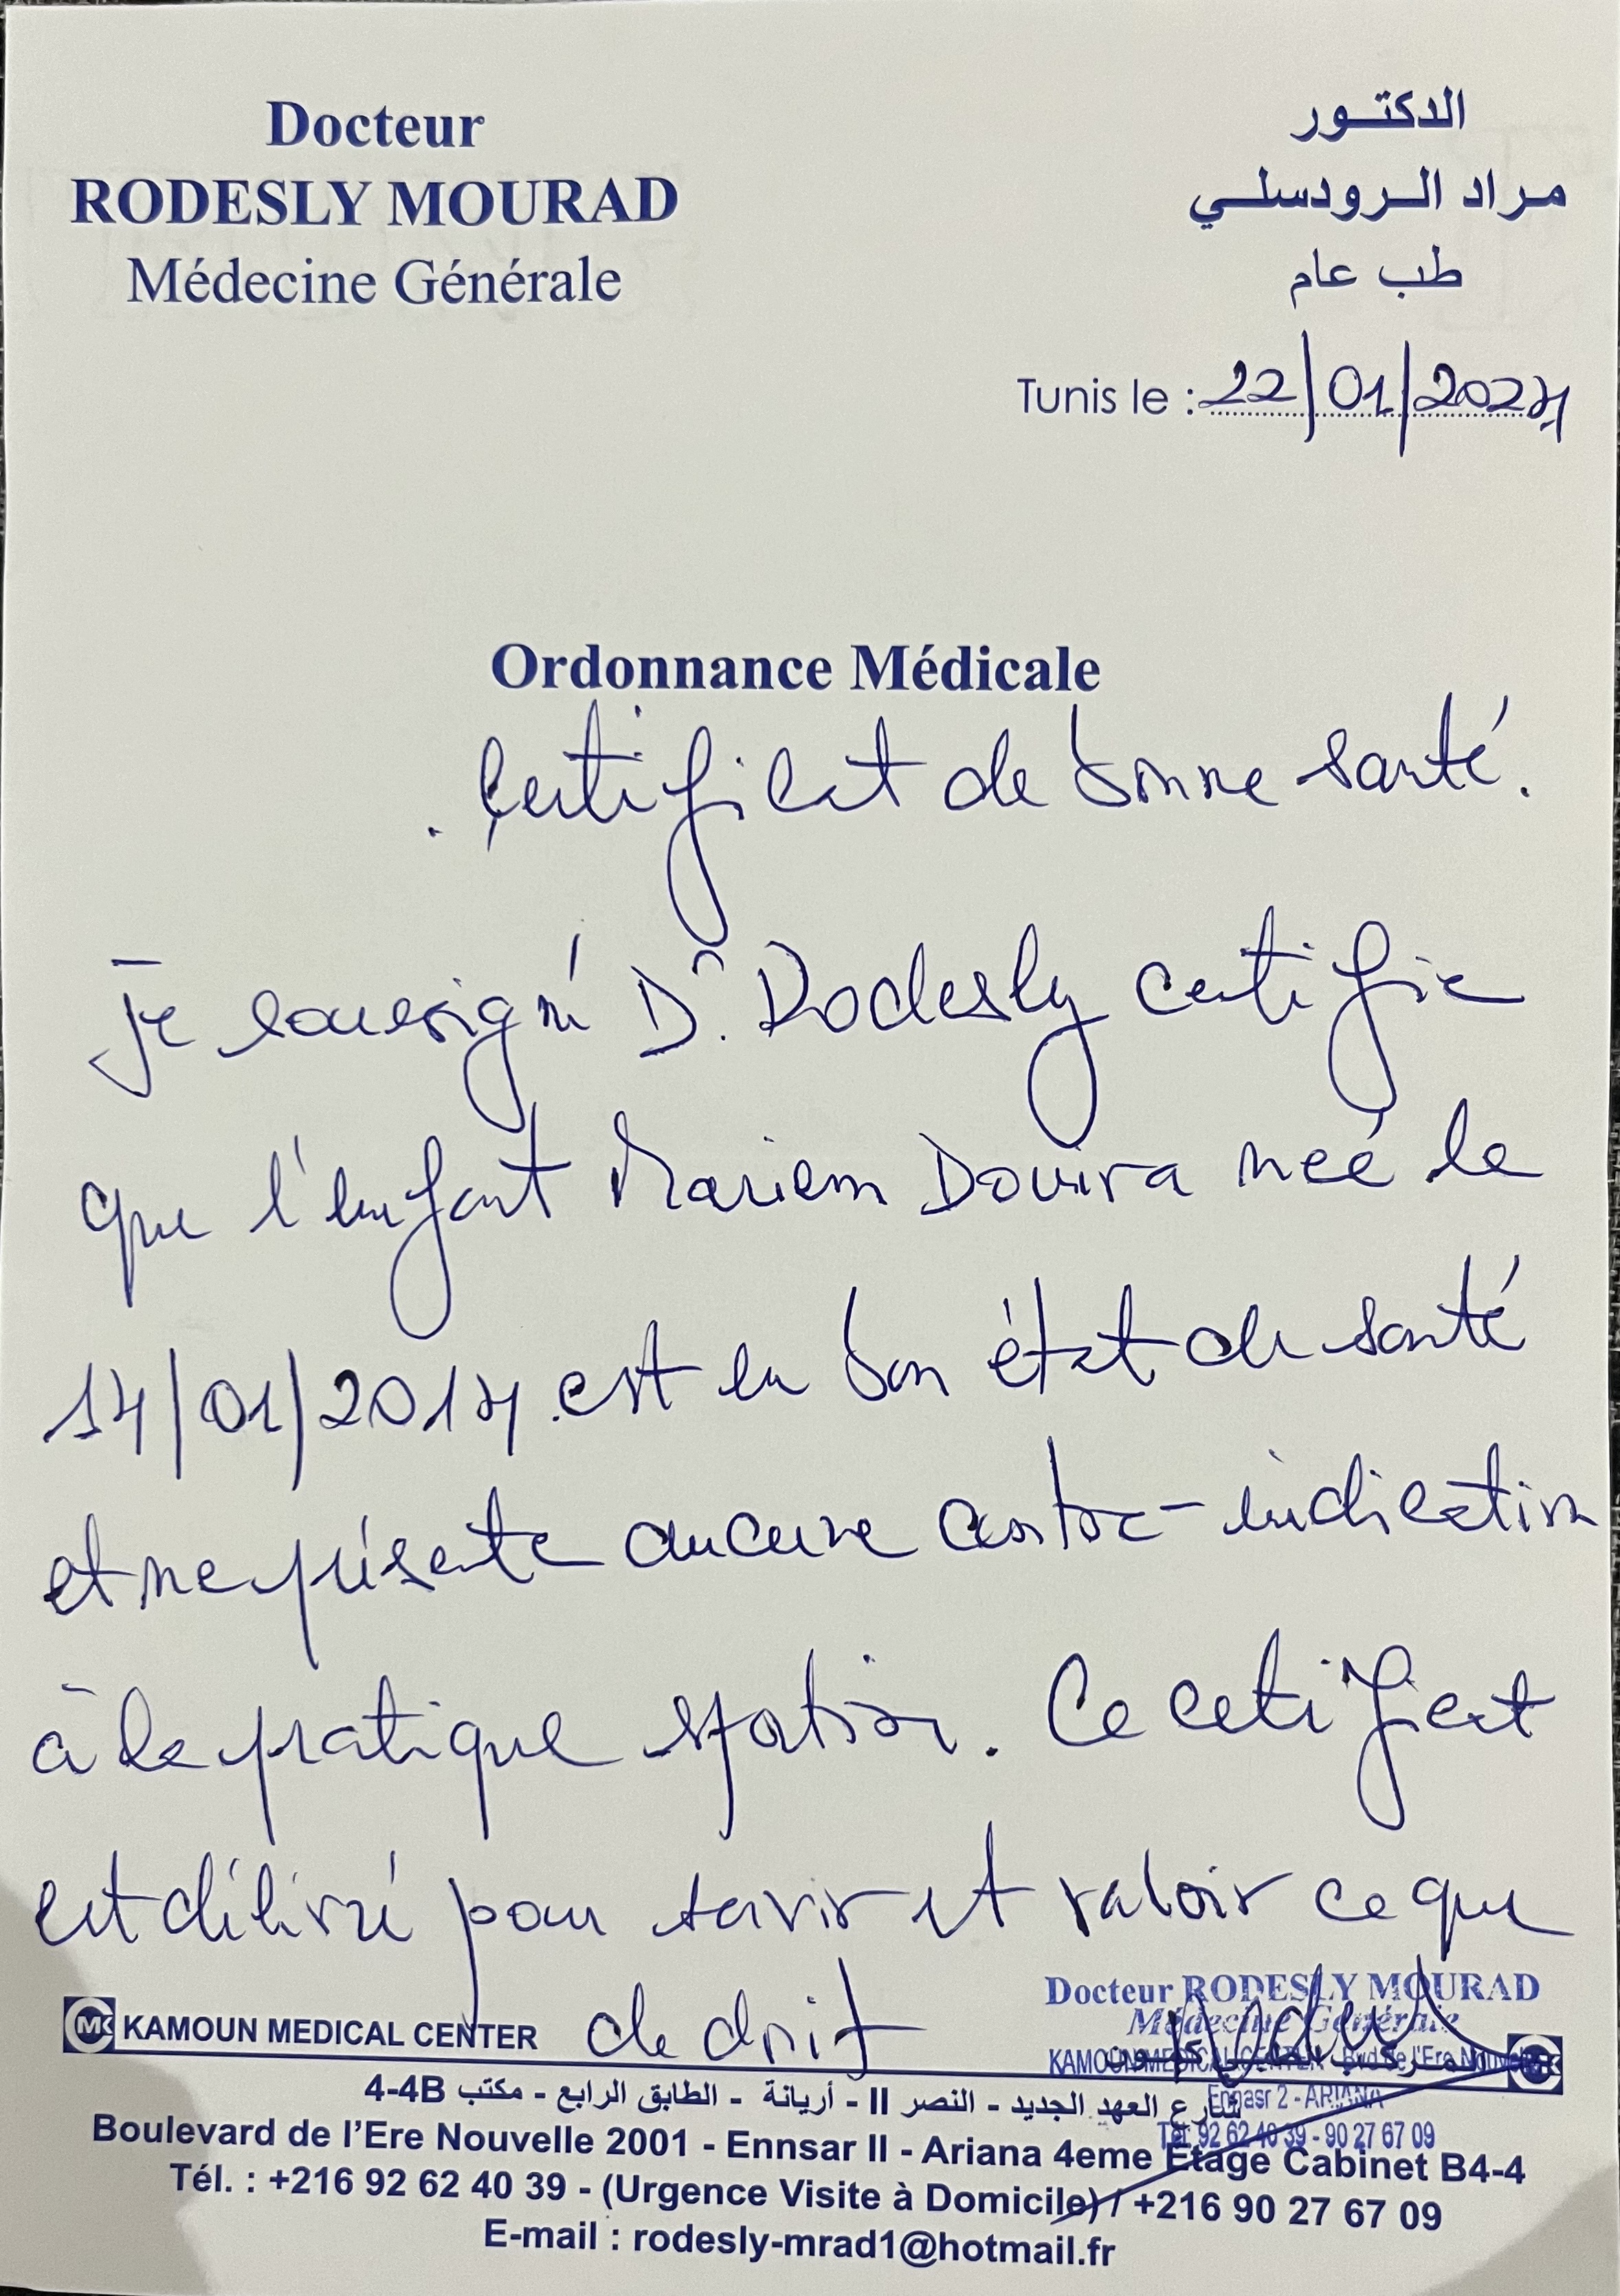 Docteur
RODESLY MOURAD
Médecine Générale
الدكتور
مراد الرودسلي
طب عام
Tunis le : 22/01/2024
Ordonnance Médicale
Certificat de bonne santé.
Je soussigné Dr. Rodesly certifie
que l'enfant Mariem Douira née le
14/01/2014 est en bon état de santé
et ne présente aucune contre-indication
à la pratique sportive. Ce certificat
est délivré pour servir et valoir ce que
de droit
Docteur RODESLY MOURAD
Médecine Générale
KAMOUN MEDICAL CENTER - Bvd de l'Ere Nouvelle
Ennasr 2 - ARIANA
Tél: 92 62 40 39 - 90 27 67 09
KAMOUN MEDICAL CENTER
شارع العهد الجديد - النصر II - أريانة - الطابق الرابع - مكتب 4-4B
Boulevard de l'Ere Nouvelle 2001 - Ennsar II - Ariana 4eme Etage Cabinet B4-4
Tél. : +216 92 62 40 39 - (Urgence Visite à Domicile) / +216 90 27 67 09
E-mail : rodesly-mrad1@hotmail.fr